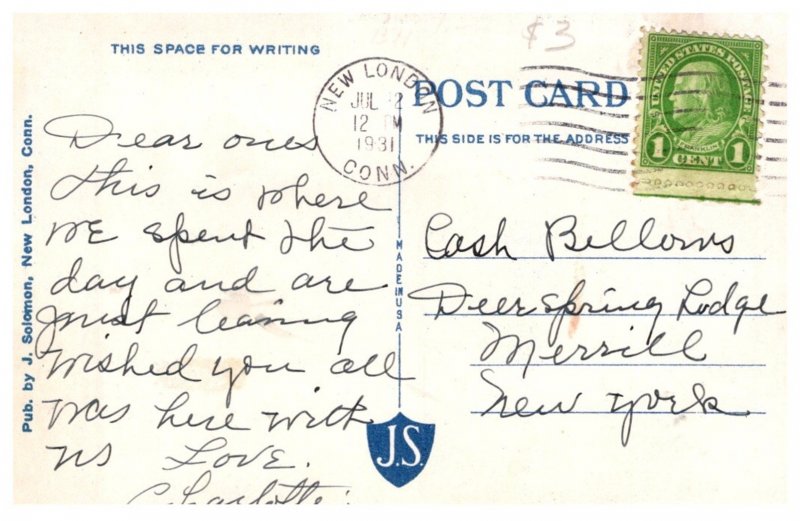 $3
THIS SPACE FOR WRITING
POST CARD
THIS SIDE IS FOR THE ADDRESS
NEW LONDON
JUL 12
12 PM
1931
CONN.
UNITED STATES POSTAGE
FRANKLIN
1 CENT 1
Dear ones
This is where
we spent the
day and are
just leaving
Wished you all
was here with
us Love.
Charlotte.
Cash Bellows
Deerspring Lodge
Merrill
New York
MADE IN USA
J.S.
Pub. by J. Solomon, New London, Conn.